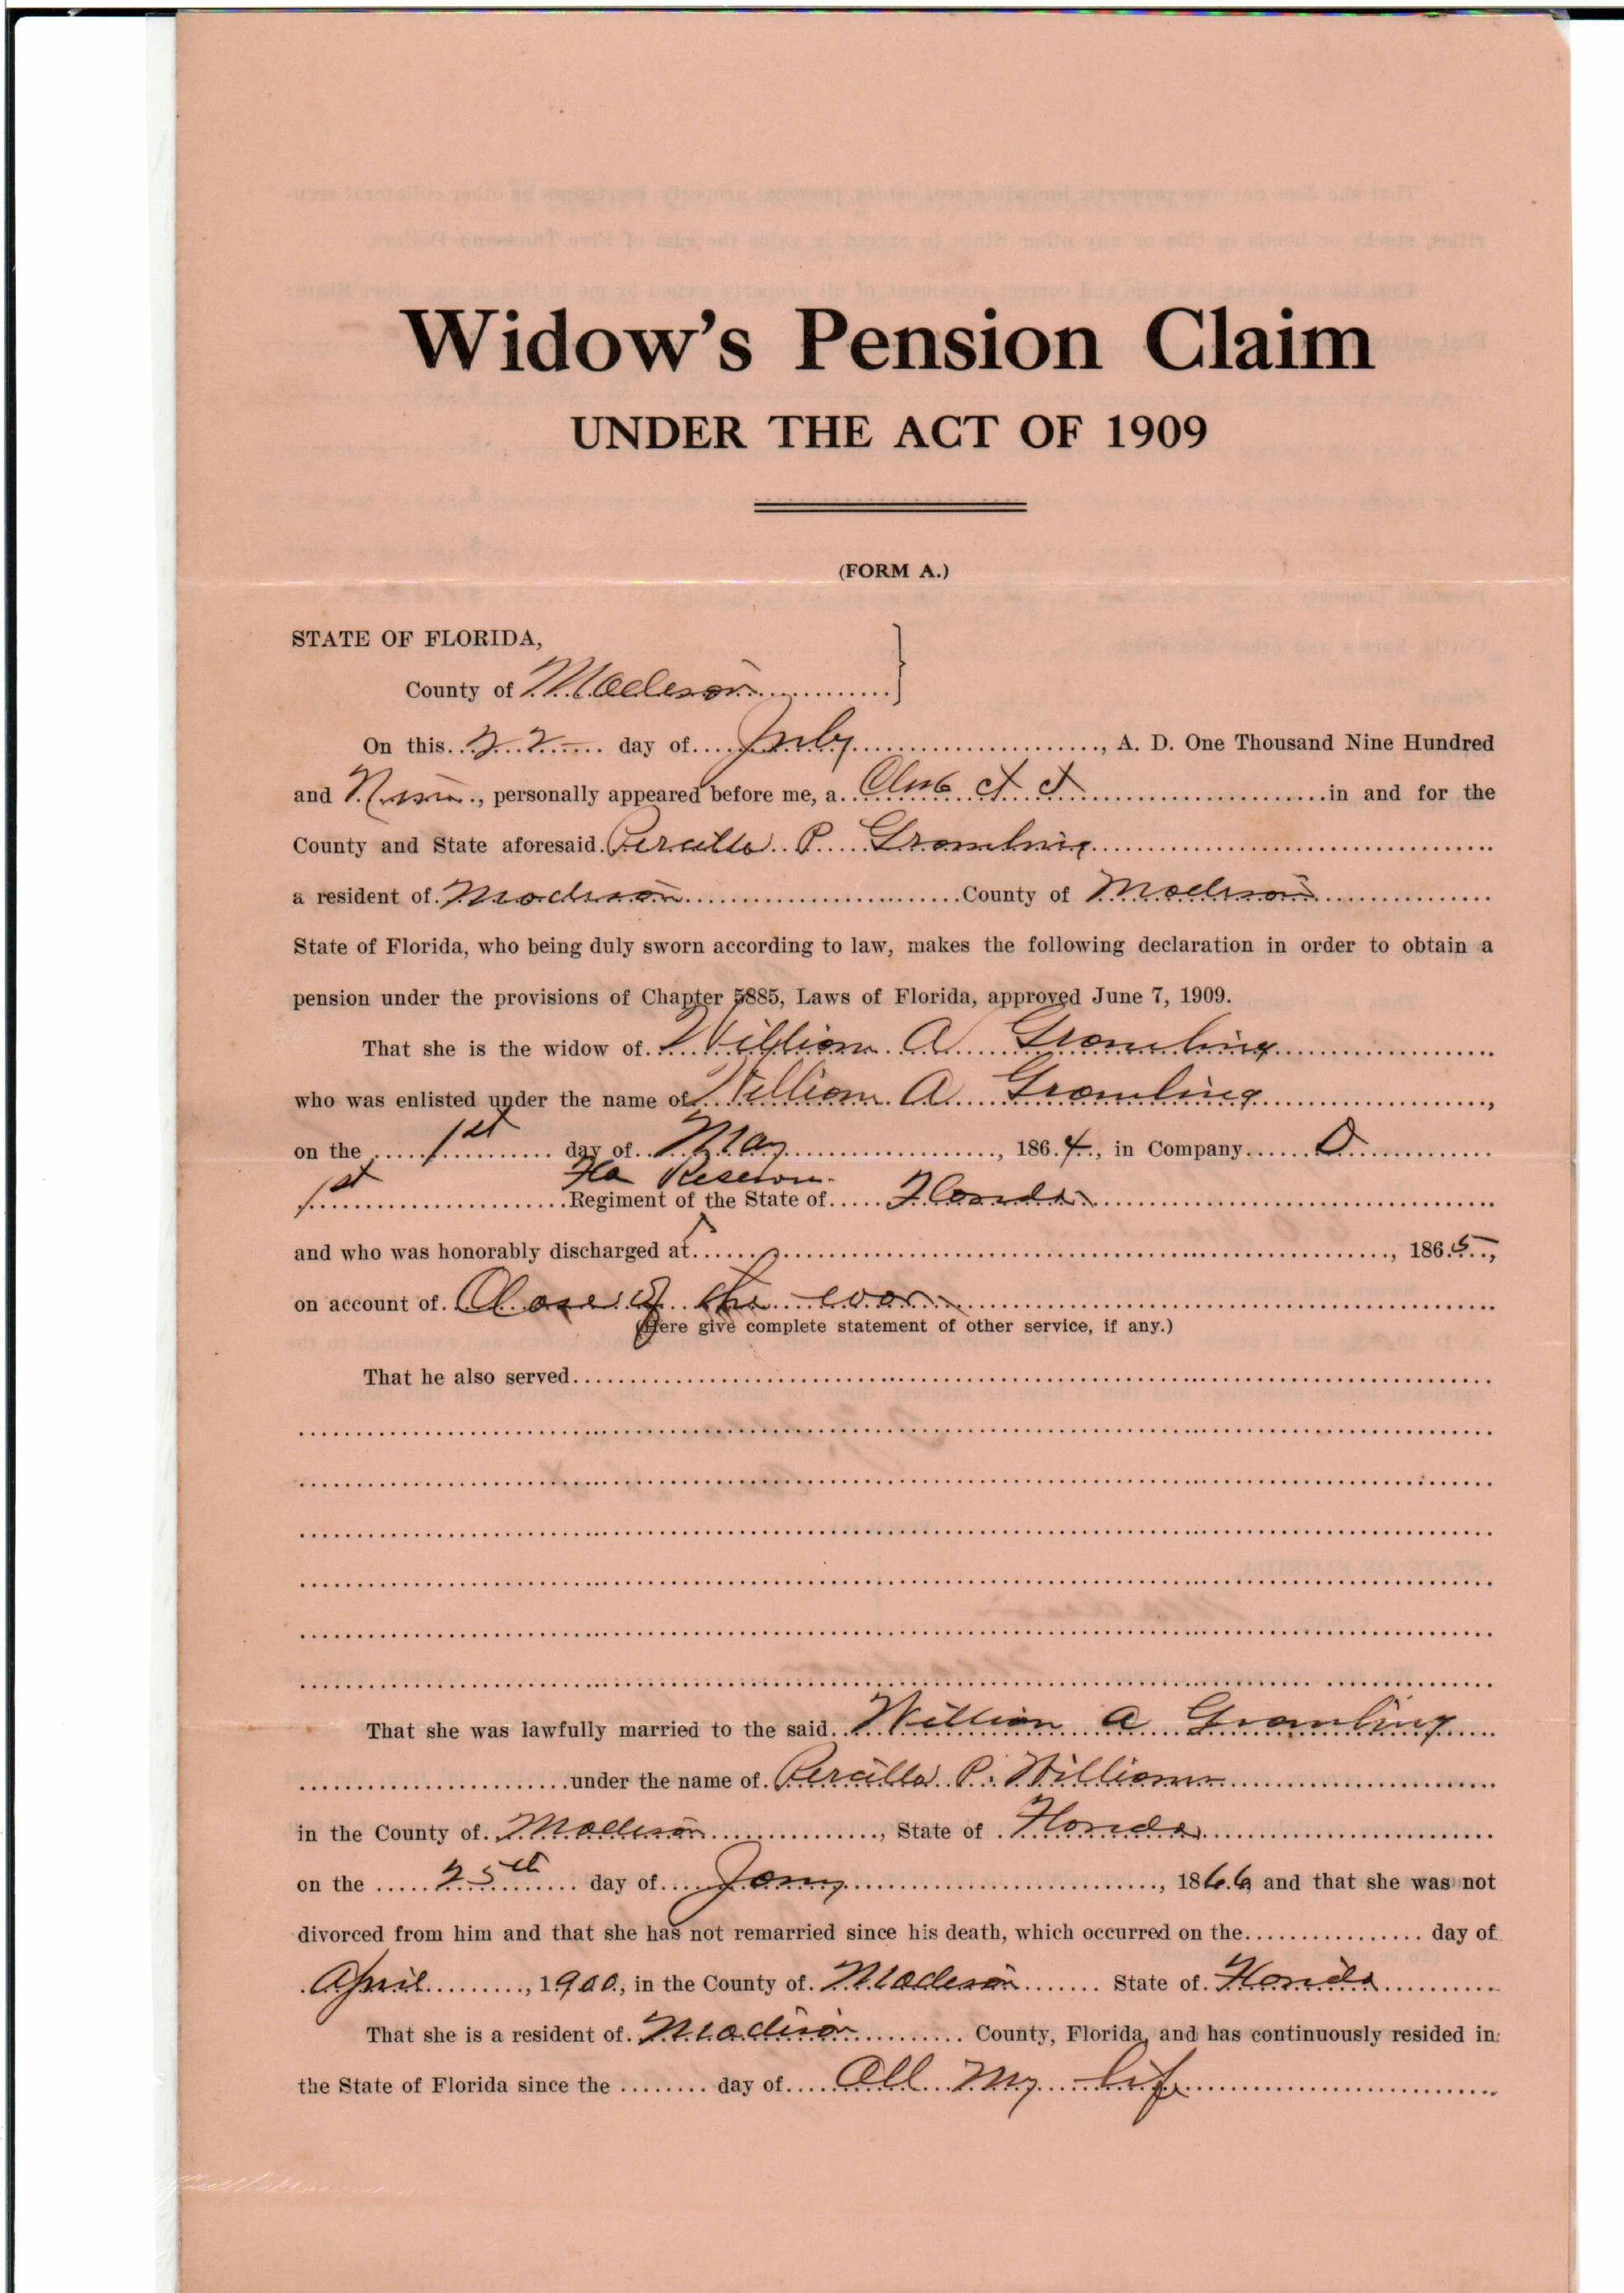 Widow's Pension Claim
UNDER THE ACT OF 1909
(FORM A.)
STATE OF FLORIDA,
County of Madison
On this 22 day of July, A. D. One Thousand Nine Hundred
and Nine, personally appeared before me, a Clerk in and for the
County and State aforesaid Percilla P. Gramling
a resident of Madison County of Madison
State of Florida, who being duly sworn according to law, makes the following declaration in order to obtain a
pension under the provisions of Chapter 5885, Laws of Florida, approved June 7, 1909.
That she is the widow of William A Gramling
who was enlisted under the name of William A Gramling,
on the 1st day of May, 1864, in Company D
Fla Reserve
1st Regiment of the State of Florida
and who was honorably discharged at, 1865,
on account of Close of the war
(Here give complete statement of other service, if any.)
That he also served
That she was lawfully married to the said William A Gramling
under the name of Percilla P. Williams
in the County of Madison, State of Florida
on the 25th day of Jany, 1866 and that she was not
divorced from him and that she has not remarried since his death, which occurred on the day of
April, 1900, in the County of Madison State of Florida
That she is a resident of Madison County, Florida, and has continuously resided in
the State of Florida since the day of All My life